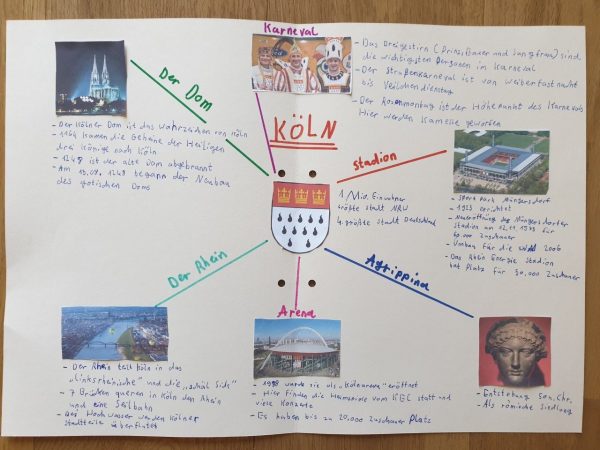 Karneval
- Das Dreigestirn (Prinz, Bauer und Jungfrau) sind
die wichtigsten Personen im Karneval
- Der Straßenkarneval ist von Weiberfastnacht
bis Veilchendienstag
- Der Rosenmontag ist der Höhepunkt des Karnevals
Hier werden Kamelle geworfen
Der Dom
- Der Kölner Dom ist das Wahrzeichen von Köln
- 1164 kamen die Gebeine der Heiligen
drei Könige nach Köln
- 1248 ist der alte Dom abgebrannt
- Am 15.08. 1248 begann der Neubau
des gotischen Doms
KÖLN
Stadion
- Sport Park Müngersdorf
- 1923 errichtet
- Neueröffnung des Müngersdorfer
Stadion am 12.11 1975 für
60.000 Zuschauer
- Umbau für die WM 2006
- Das Rhein Energie Stadion
hat Platz für 50.000 Zuschauer
1 Mio. Einwohner
größte Stadt NRW
4. größte Stadt Deutschland
Der Rhein
- Der Rhein teilt Köln in das
"Linksrheinische" und die "schäl Sick"
- 7 Brücken queren in Köln den Rhein
und eine Seilbahn
- Das Hochwasser werden Kölner
Stadtteile überflutet
Arena
- 1998 wurde sie als "Kölnarena" eröffnet
- Hier finden die Heimspiele vom KEC statt und
viele Konzerte
- Es haben bis zu 20.000 Zuschauer Platz
Agrippina
- Entstehung 50 n. Chr.
- Als römische Siedlung